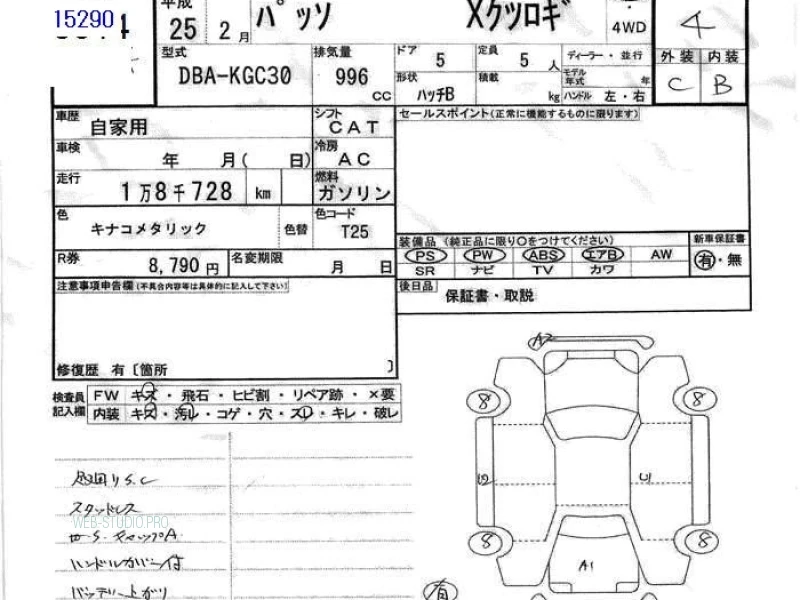 15290
平成
25 2月 パッソ Xクツロギ 4WD 4
型式 排気量 ドア 定員 ディーラー・並行 外装 内装
DBA-KGC30 996 CC 5 5人 モデル年式 年 C B
形状 ハッチB 積載 kg ハンドル 左・右
車歴 自家用 シフト CAT セールスポイント(正常に機能するものに限ります)
車検 年 月( 日) 冷房 AC
走行 1万8千728 km 燃料 ガソリン
色 キナコメタリック 色替 色コード T25
装備品 (純正品に限り○をつけてください) 新車保証書
PS PW ABS エアB AW 有・無
SR ナビ TV カワ
R券 8,790円 名変期限 月 日
後日品 保証書・取説
注意事項申告欄(不具合内容等は具体的に記入して下さい)
修復歴 有〔箇所 〕
検査員記入欄 FW キズ・飛石・ヒビ割・リペア跡・×要
内装 キズ・汚レ・コゲ・穴・スレ・キレ・破レ
A2
8 8
U
8 8
A1
有
スタッドレス
WEB-STUDIO.PRO
ハンドルカバー付
バッテリー上がり